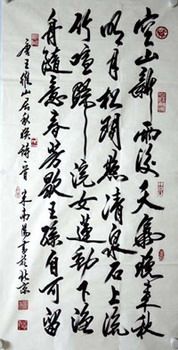 空山新雨後天氣晚来秋
明月松間照清泉石上流
竹喧歸浣女蓮動下漁
舟隨意春芳歇王孫自可留
唐王維山居秋暝詩一首 米南陽書於北京